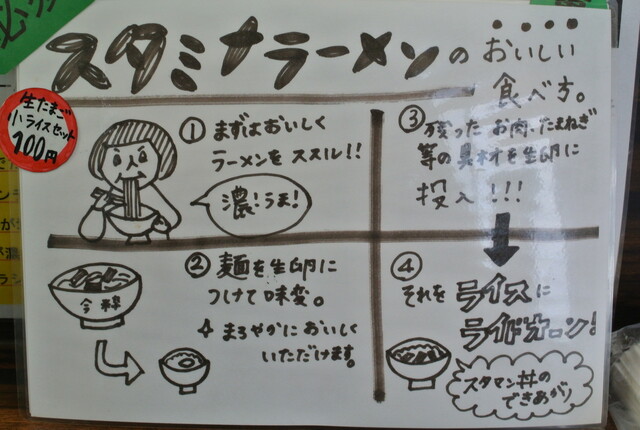 スタミナラーメンの おいしい
食べ方。
生たまご
小ライスセット
100円
① まずはおいしく
ラーメンを ススル!!
濃!うま!
② 麺を生卵に
つけて味変。
まろやかにおいしく
いただけます。
③ 残ったお肉、たまねぎ
等の具材を生卵に
投入!!!
④
それを ライスに
ライドオーン!
スタマン丼の
できあがり